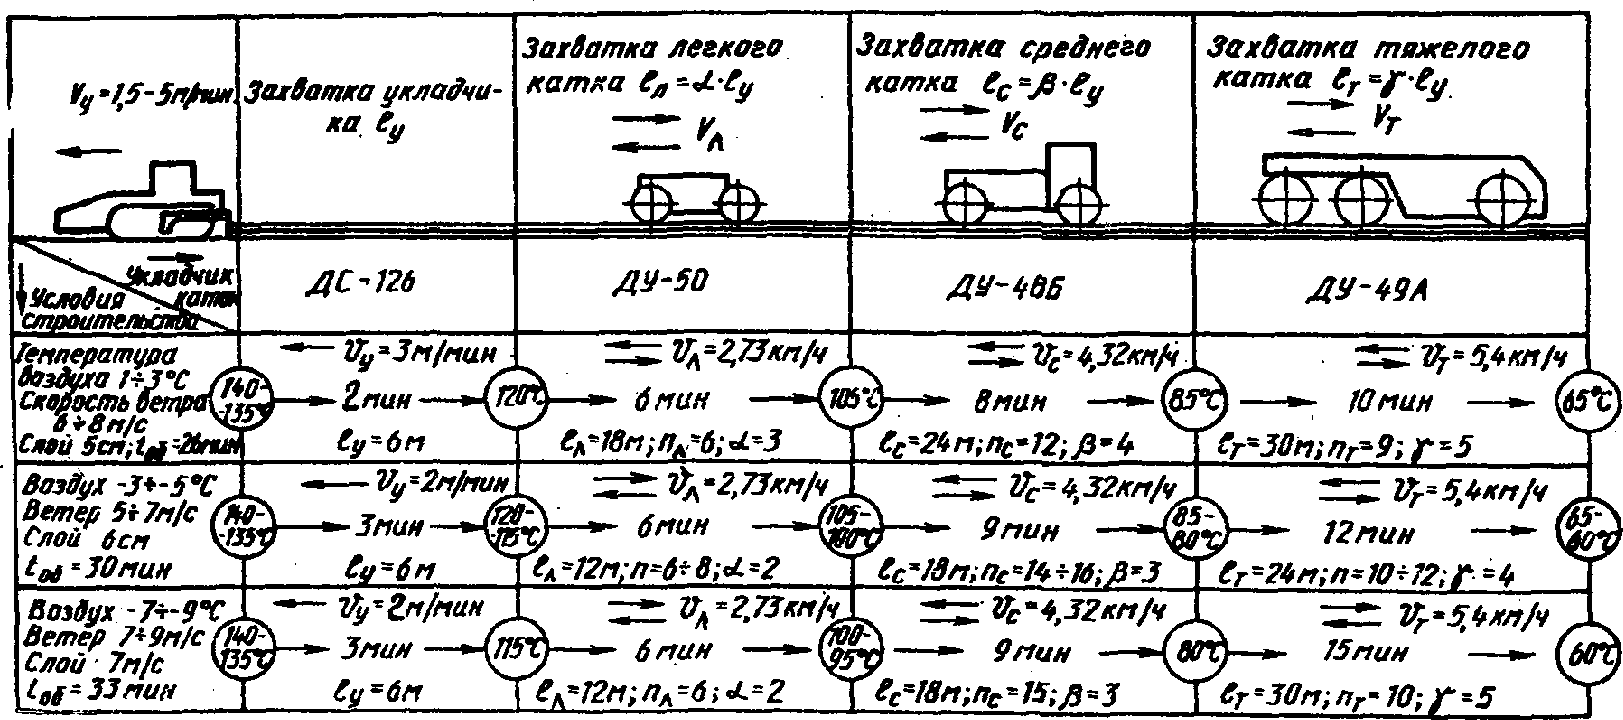 Vу=1,5-5м/мин
Захватка укладчи-
ка ℓу
Захватка легкого
катка ℓл=α·ℓу
Vл
Захватка среднего
катка ℓс=β·ℓу
Vс
Захватка тяжелого
катка ℓт=γ·ℓу
Vт
Укладчик
каток
Условия
строительства
ДС-126
ДУ-50
ДУ-48Б
ДУ-49А
Температура
воздуха 1÷3°С
Скорость ветра
6÷8м/с
Слой 5см; tоб=26мин
140-
-135°С
Vу=3м/мин
2мин
ℓу=6м
120°С
Vл=2,73км/ч
6мин
ℓл=18м; nл=6; α=3
105°С
Vс=4,32км/ч
8мин
ℓс=24м; nс=12; β=4
85°С
Vт=5,4км/ч
10мин
ℓт=30м; nт=9; γ=5
65°С
Воздух -3÷-5°С
Ветер 5÷7м/с
Слой 6см
tоб=30мин
140-
-135°С
Vу=2м/мин
3мин
ℓу=6м
120-
-115°С
Vл=2,73км/ч
6мин
ℓл=12м; n=6÷8; α=2
105-
100°С
Vс=4,32км/ч
9мин
ℓс=18м; nс=14÷16; β=3
85-
80°С
Vт=5,4км/ч
12мин
ℓт=24м; n=10÷12; γ=4
65-
60°С
Воздух -7÷-9°С
Ветер 7÷9м/с
Слой 7м/с
tоб=33мин
140-
135°С
Vу=2м/мин
3мин
ℓу=6м
115°С
Vл=2,73км/ч
6мин
ℓл=12м; nл=6; α=2
100-
95°С
Vс=4,32км/ч
9мин
ℓс=18м; nс=15; β=3
80°С
Vт=5,4км/ч
15мин
ℓт=30м; nт=10; γ=5
60°С